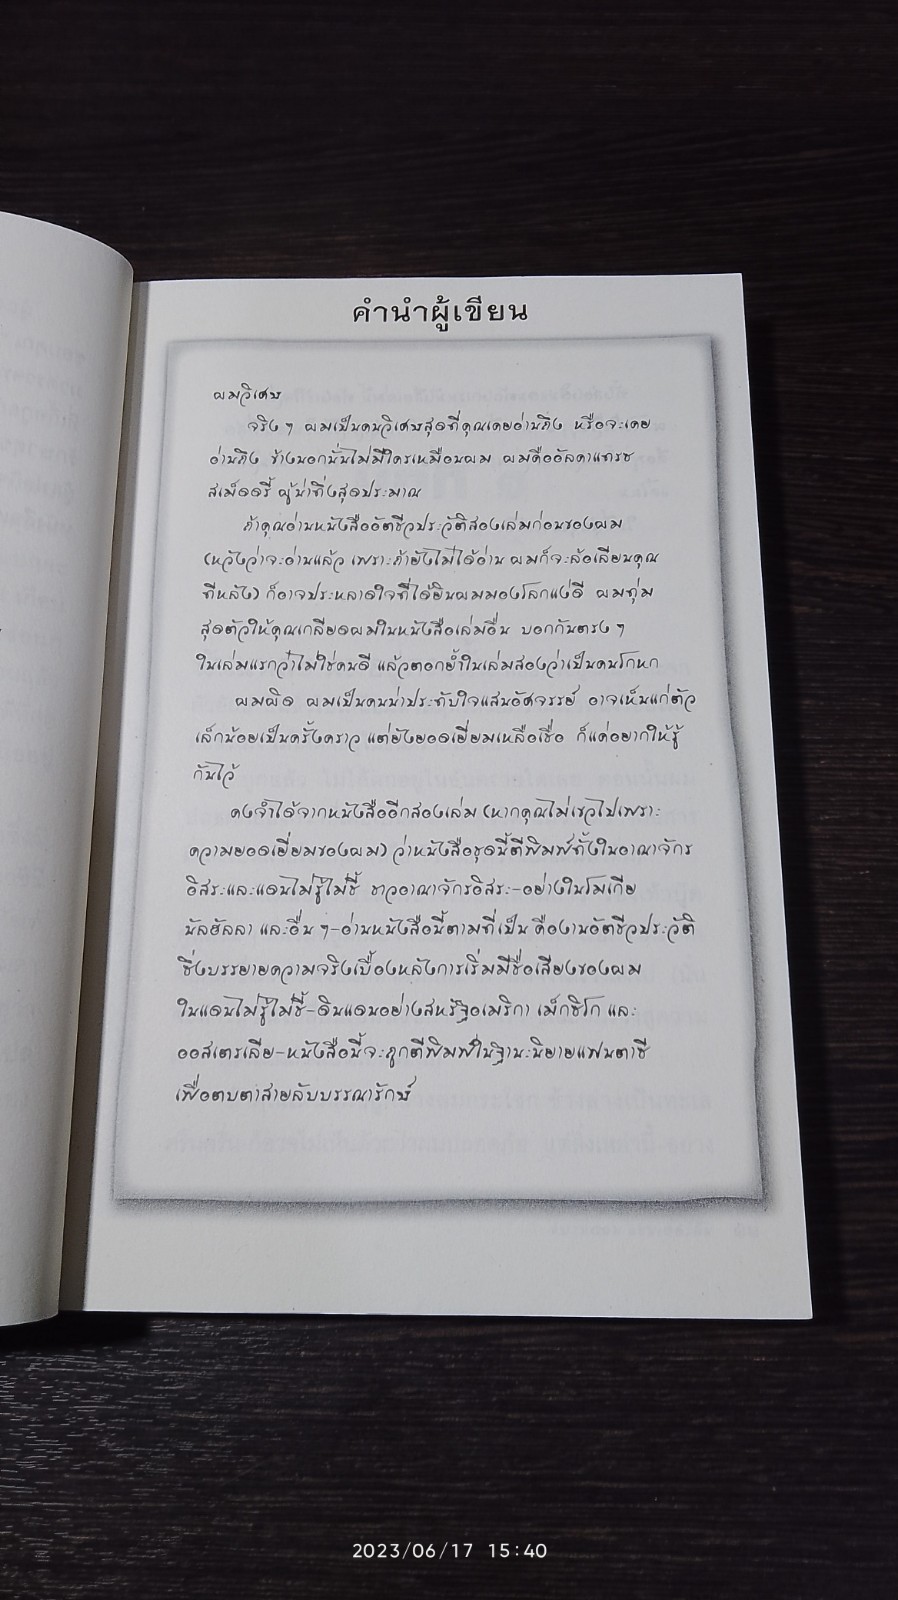 คำนำผู้เขียน
ผมวิเศษ
จริงๆ ผมเป็นคนวิเศษสุดที่คุณเคยอ่านถึง หรือจะเคย
อ่านถึง ข้างนอกนั่นไม่มีใครเหมือนผม ผมคืออัลคาแทรซ
สเม็ดดรี้ ผู้น่าทึ่งสุดประมาณ
ถ้าคุณอ่านหนังสืออัตชีวประวัติสองเล่มก่อนของผม
(หวังว่าจะอ่านแล้ว เพราะถ้ายังไม่ได้อ่าน ผมก็จะล้อเลียนคุณ
ทีหลัง) ก็อาจประหลาดใจที่ได้ยินผมมองโลกแง่ดี ผมทุ่ม
สุดตัวให้คุณเกลียดผมในหนังสือเล่มอื่น บอกกันตรงๆ
ในเล่มแรกว่าไม่ใช่คนดี แล้วตอกย้ำในเล่มสองว่าเป็นคนโกหก
ผมผิด ผมเป็นคนน่าประทับใจแสนอัศจรรย์ อาจเห็นแก่ตัว
เล็กน้อยเป็นครั้งคราว แต่ยังยอดเยี่ยมเหลือเชื่อ ก็แค่อยากให้รู้
กันไว้
คงจำได้จากหนังสืออีกสองเล่ม (หากคุณไม่เขวไปเพราะ
ความยอดเยี่ยมของผม) ว่าหนังสือชุดนี้ตีพิมพ์ทั้งในอาณาจักร
อิสระและแดนไม่รู้ไม่ชี้ ชาวอาณาจักรอิสระ-อย่างในโมเกีย
นัลฮัลลา และอื่นๆ-อ่านหนังสือนี้ตามที่เป็น คืองานอัตชีวประวัติ
ซึ่งบรรยายความจริงเบื้องหลังการเริ่มมีชื่อเสียงของผม
ในแดนไม่รู้ไม่ชี้-ดินแดนอย่างสหรัฐอเมริกา เม็กซิโก และ
ออสเตรเลีย-หนังสือนี้จะถูกตีพิมพ์ในฐานะนิยายแฟนตาซี
เพื่อตบตาสายลับบรรณารักษ์
2023/06/17 15:40